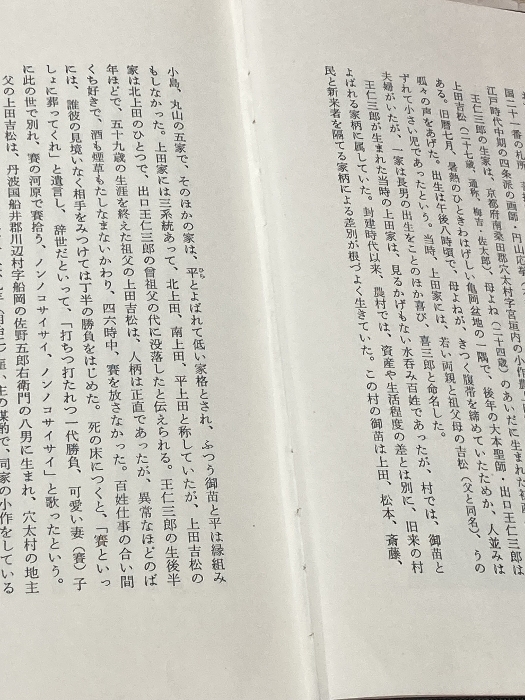 国二十一番の札所
江戸時代中期の四条派の画師・円山応挙
王仁三郎の生家は、京都府南桑田郡穴太村字宮垣内の小作農
上田吉松(二十七歳、通称、梅吉・佐太郎)、母よね(二十四歳)のあいだに生まれた
ある。旧暦七月、暑熱のひときわはげしい亀岡盆地の一隅で、後年の大本聖師・出口王仁三郎は
呱々の声をあげた。出生は午後八時頃で、母よねが、きつく腹帯を締めていたためか、人並みは
ずれて小さい児であったという。当時、上田家には、若い両親と祖父母の吉松(父と同名)、うの
夫婦がいたが、一家は長男の出生をことのほか喜び、喜三郎と命名した。
王仁三郎が生まれた当時の上田家は、見るかげもない水呑み百姓であったが、村では、御苗と
よばれる家柄に属していた。封建時代以来、農村では、資産や生活程度の差とは別に、旧来の村
民と新来者を隔てる家柄による差別が根づよく生きていた。この村の御苗は上田、松本、斎藤、
小島、丸山の五家で、そのほかの家は、平とよばれて低い家格とされ、ふつう御苗と平は縁組み
もしなかった。上田家には三系統あって、北上田、南上田、平上田と称していたが、上田吉松の
家は北上田のひとつで、出口王仁三郎の曾祖父の代に没落したと伝えられる。王仁三郎の生後半
年ほどで、五十九歳の生涯を終えた祖父の上田吉松は、人柄は正直であったが、異常なほどのば
くち好きで、酒も煙草もたしなまないかわり、四六時中、賽を放さなかった。百姓仕事の合い間
には、誰彼の見境いなく相手をみつけては丁半の勝負をはじめた。死の床につくと、「賽といっ
しょに葬ってくれ」と遺言し、辞世だといって、「打ちつ打たれつ一代勝負、可愛い妻(賽)子
に此の世で別れ、賽の河原で賽拾う、ノンノコサイサイ、ノンノコサイサイ」と歌ったという。
父の上田吉松は、丹波国船井郡川辺村字船岡の佐野五郎右衛門の八男に生まれ、穴太村の地主
の媒酌で、同家の小作をしている